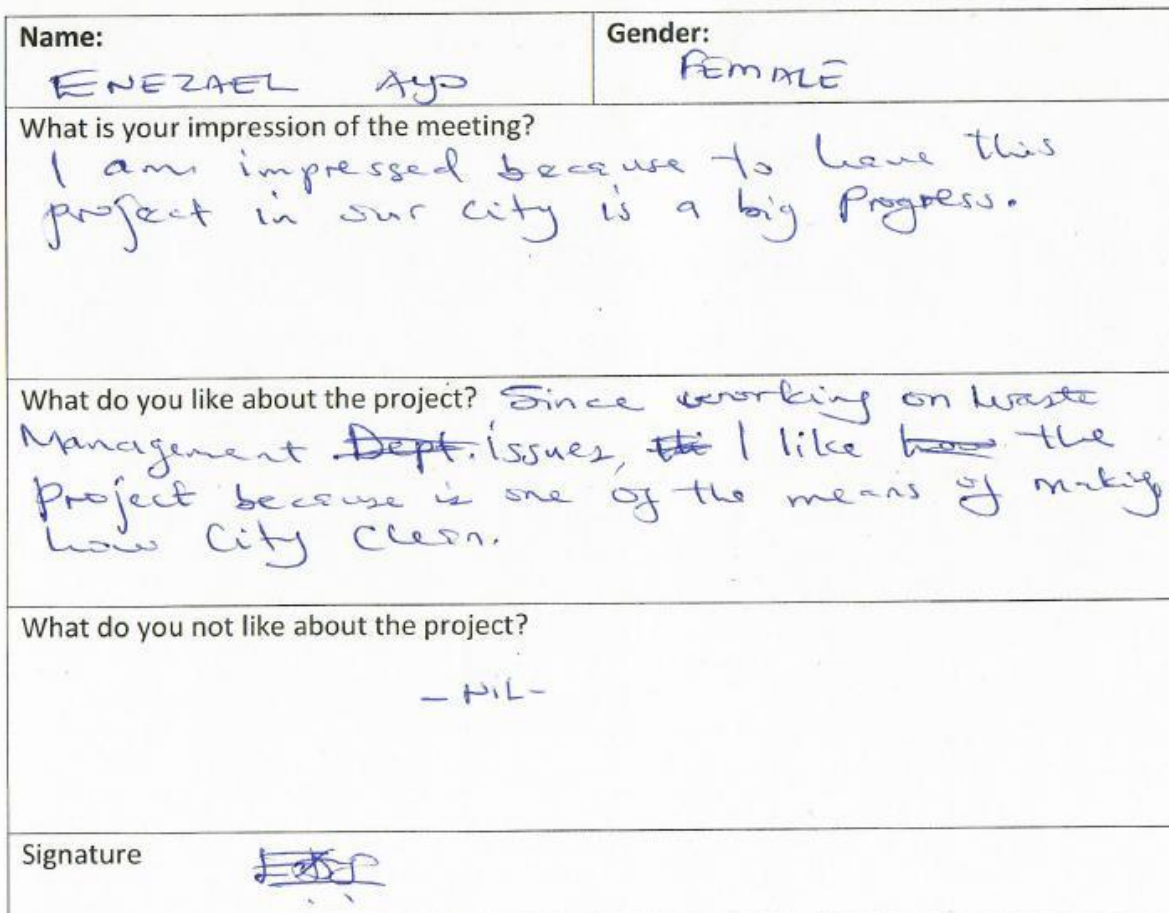 Name: Gender:
ENEZAEL AYO FEMALE
What is your impression of the meeting?
I am impressed because to have this
project in our city is a big Progress.
What do you like about the project? Since working on waste
Management Dept. issues, I like how the
Project because is one of the means of making
how City Clean.
What do you not like about the project?
- NIL -
Signature